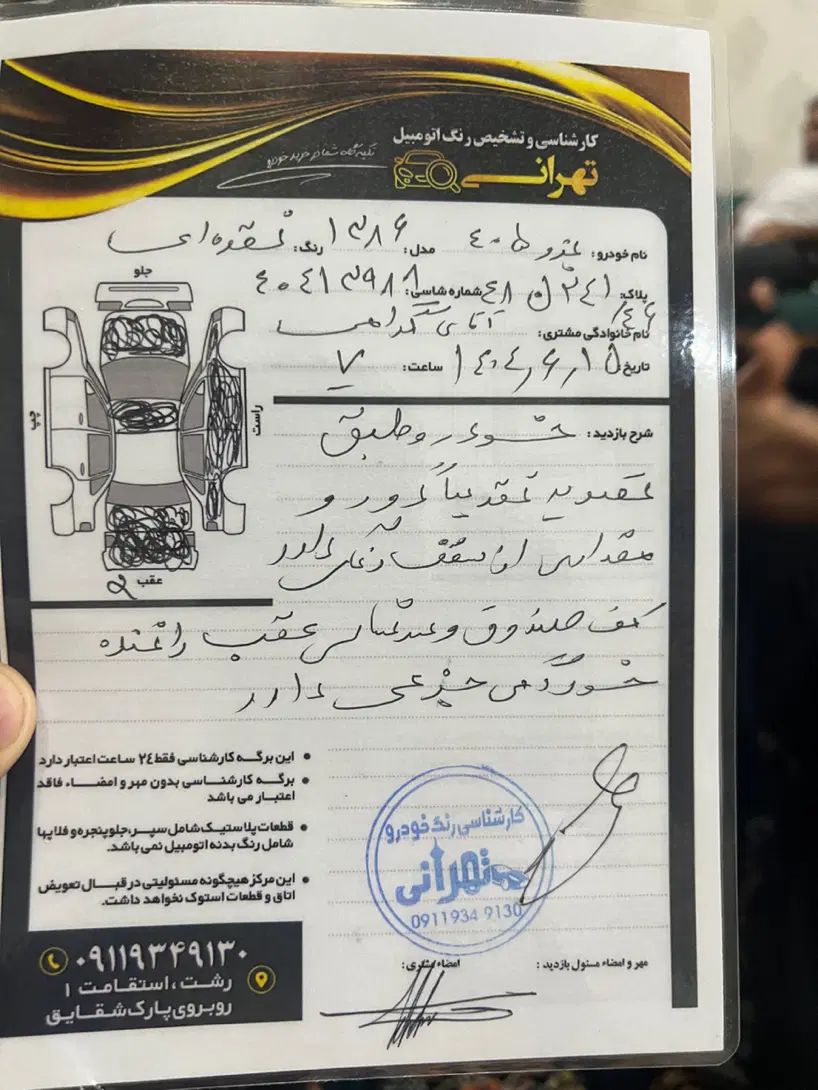 کارشناسی و تشخیص رنگ اتومبیل
تهرانی
تکیه گاه شما در خرید خودرو
نام خودرو: پژو ۴۰۵ مدل: ۱۳۸۶ رنگ: نقره ای
پلاک: ۲۴۱ شماره شاسی: ۴۰۴۱۳۹۸۸
نام خانوادگی مشتری: آقای گرامی
تاریخ: ۱۴۰۴/۶/۱۵ ساعت: ۷
جلو
چپ
راست
عقب
شرح بازدید: خودرو طبق
تصویر تقریباً دور و
مقداری از سقف رنگ دارد
کف صندوق و سینی عقب
خوردگی جزئی دارد
این برگه کارشناسی فقط ۲۴ ساعت اعتبار دارد
برگه کارشناسی بدون مهر و امضاء فاقد
اعتبار می باشد
قطعات پلاستیک شامل سپر، جلو پنجره و فلاپها
شامل رنگ بدنه اتومبیل نمی باشد.
این مرکز هیچگونه مسئولیتی در قبال تعویض
اتاق و قطعات استوک نخواهد داشت.
کارشناسی رنگ خودرو
تهرانی
0911934 9130
مهر و امضاء مسئول بازدید :
امضاء مشتری:
۰۹۱۱۹۳۴۹۱۳۰
رشت، استقامت ۱
روبروی پارک شقایق